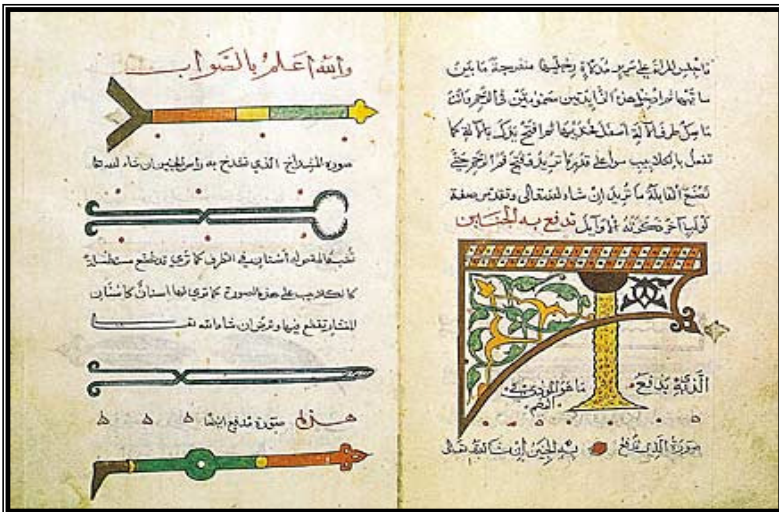 فاجلس المراة على سرير مدلاة رجليها منفرجة ما بين
ساقيها ثم ادخل هذه الزايدتين مضمومتين في الرحم وانت
ماسك طرف الآلة اسفل فخذيها ثم افتح يدك بالآلة كما
تفعل بالكلاليب سوا على قدر ما تريد فتح فم الرحم حتى
تصنع القابلة ما تريد ان شاء الله تعالى وتقدس صفة
لولب آخر ذكرته الاوايل تدفع به الجنين
الذي يدفع ما هو
صورة الذي تدفع به الجنين ان شا الله تعالى
والله اعلم بالصواب
صورة المشداخ الذي تشدخ به راس الجنين ان شاء الله تعا
تشبه المقص له اسنان في الطرف كما تري وقد تصنع مستطيلة
كالكلاليب على هذه الصورة كما تري لها اسنان كاسنان
المنشار تقطع بها وترض ان شاء الله
هذه صورة مدفع ايضا